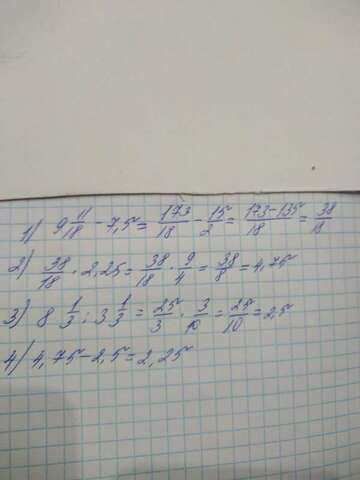 1) 9 11/18 - 7,5 = 173/18 - 15/2 = 173-135/18 = 38/18
2) 38/18 · 2,25 = 38/18 · 9/4 = 38/8 = 4,75
3) 8 1/3 : 3 1/3 = 25/3 · 3/10 = 25/10 = 2,5
4) 4,75 - 2,5 = 2,25